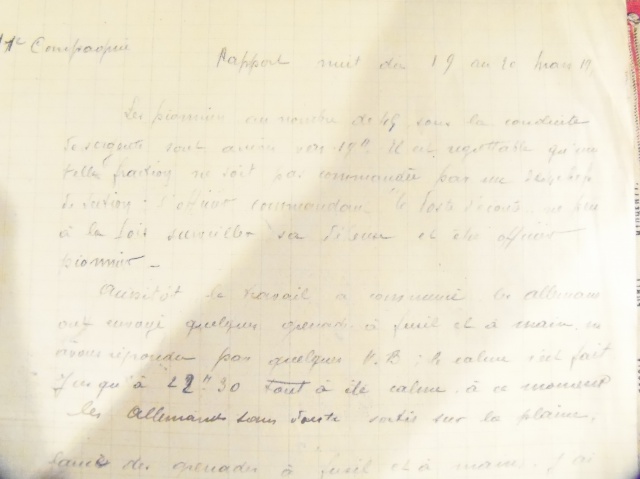 11e Compagnie
Rapport nuit du 19 au 20 Mars 17
Les pionniers au nombre de 49 sous la conduite
de sergents sont arrivés vers 19h. Il est regrettable qu'une
telle fraction ne soit pas commandée par un
de section: l'officier commandant le Poste d'écoute ne peu
à la fois surveiller sa défense et être officier
pionnier -
Aussitôt le travail à commencé. les allemands
ont envoyé quelques grenades à fusil et à main,
avons répondu par quelques V.B: le calme s'est fait
Jusqu'à 22h30 tout à été calme. à ce moment
les Allemands sans doute sortis sur la plaine,
lancé des grenades à fusil et à main. J'ai